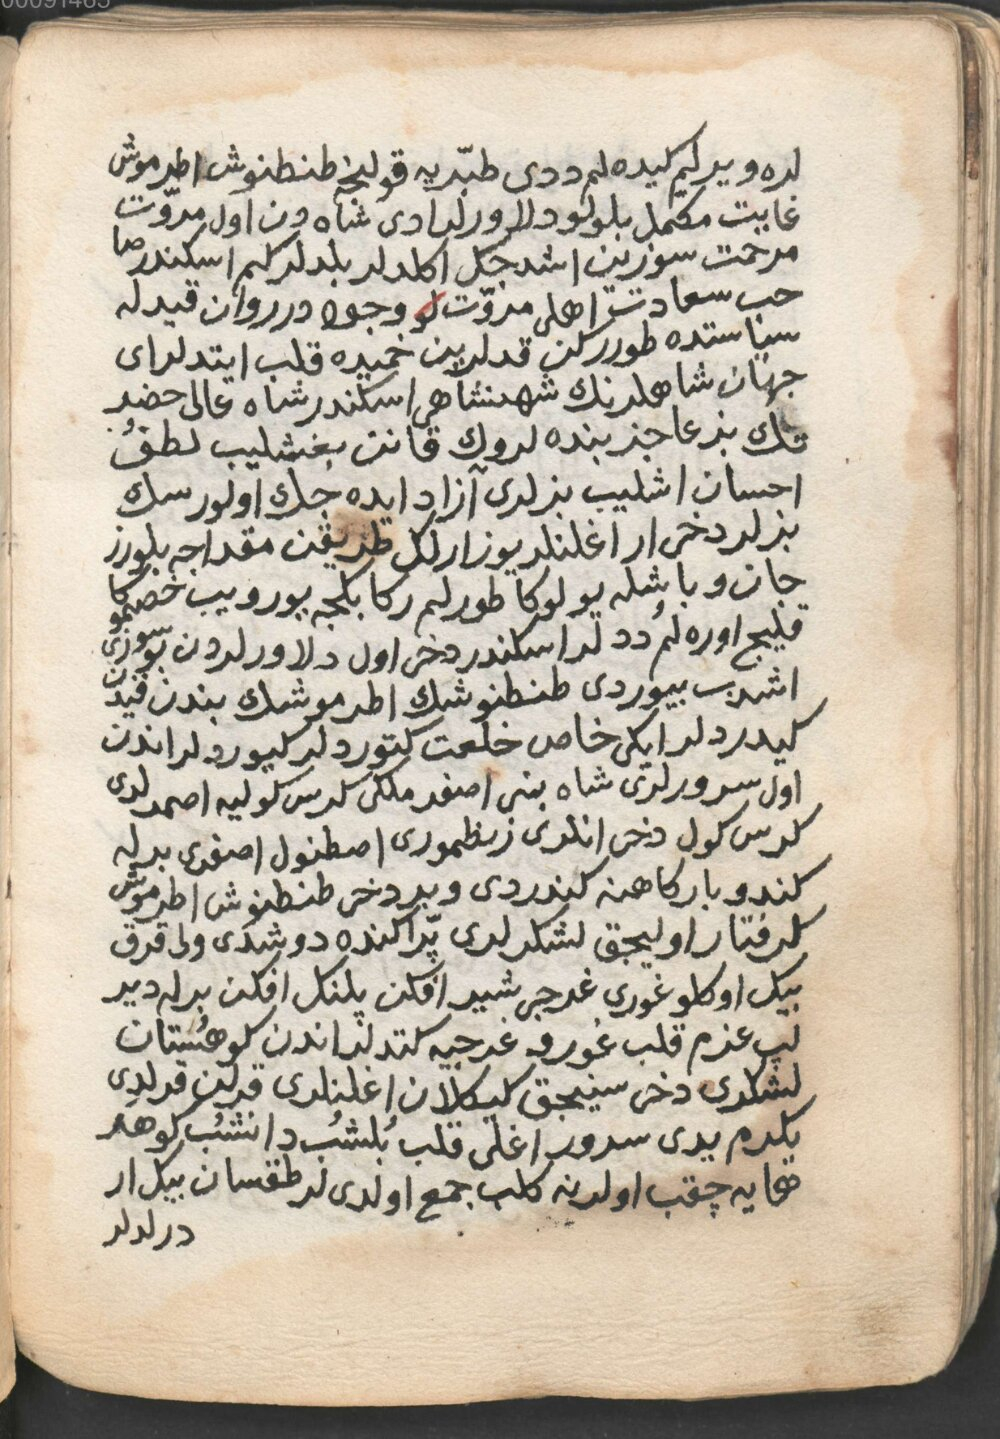 لره ویرلیم کیده لم ددی طبّریه قولیخه طنطنوش اطرموش
غایت مکمل بلولو دلاورلرادی شاه دن اول مروّت
مرحمت سوزنین اشدجکل اکلدلر بلدلرکلم اسکندرصا
حب سعادت اهلی مروّت لو وجود در روان قیدله
سیاستده طوررکن قدلرین خمیده قلب ایتدلرای
جهان شاهلرنك شهنشاهی اسکندرشاه عالی حضر
تك بز عاجز بنده لروك قانن بغشلیب لطفُ
احسان اشلیب بزلری آزاد ایده جك اولورسك
بزلر دخی ار اغلنلریوز ارلکل طریقن مقداجه بلورز
جان و باشله یولوکا طورلم رکابکجه یورویب خصموکا
قلیج اوره لُم ددلر اسکندر دخی اول دلاورلردن بوسوزی
اشدب بیوردی طنطنوشك اطرموشك بندن قیدن
کیدردلر ایکی خاص خلعت کتوردلر کیوردلر اندن
اول سرورلری شاه بنی اصفر ملکی کرس کولیه اصمرلدی
کرس کول دخی انلری زیظموری اصطنول اصفری برله
کندو بارکاهنه کندردی ویر دخی طنطنوش اطرموش
کرفتار اولیجق لشکرلری پّراکنده دوشدی ولی قرق
بیك اوکلو غوری غرجی شیر افکن پلنك افکن برله دیر
لپ عزم قلب غوره غرجیه کتدلر اندن کوهُستان
لشکری دخی سنیجق کیکلان اغلنلری قرلن قرلدی
یکرم یدی سرور اغلی قلب بُلشُب دانشُب کوهر
تمایه چقب اولرنه کلب جمع اولدی لر طقسان بیك ار
درلدلر